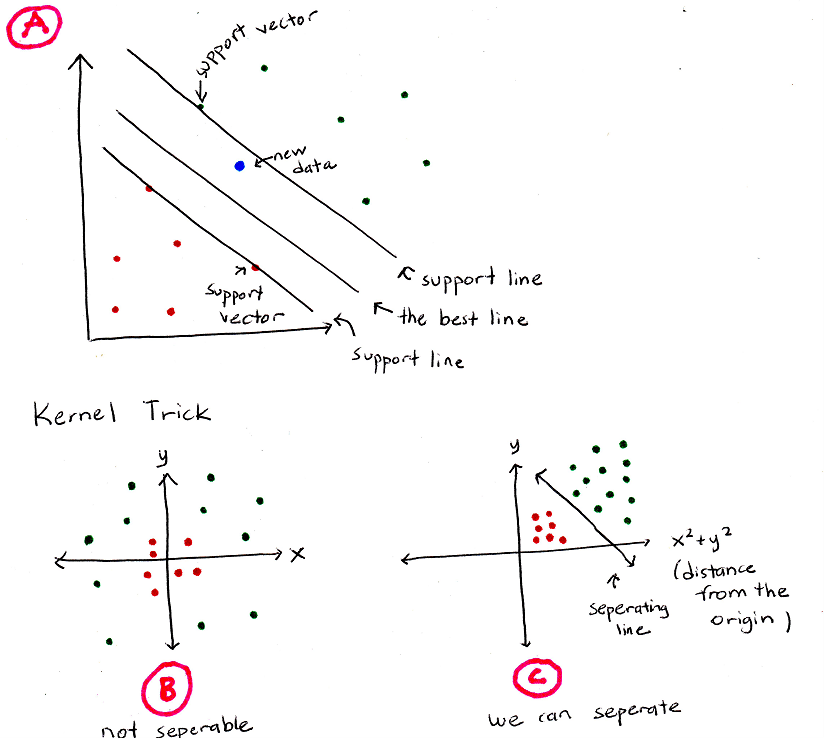 A
support vector
new
data
support
vector
support line
the best line
support line
Kernel Trick
y
x
B
not seperable
y
x²+y²
(distance
from the
origin)
seperating
line
C
we can seperate